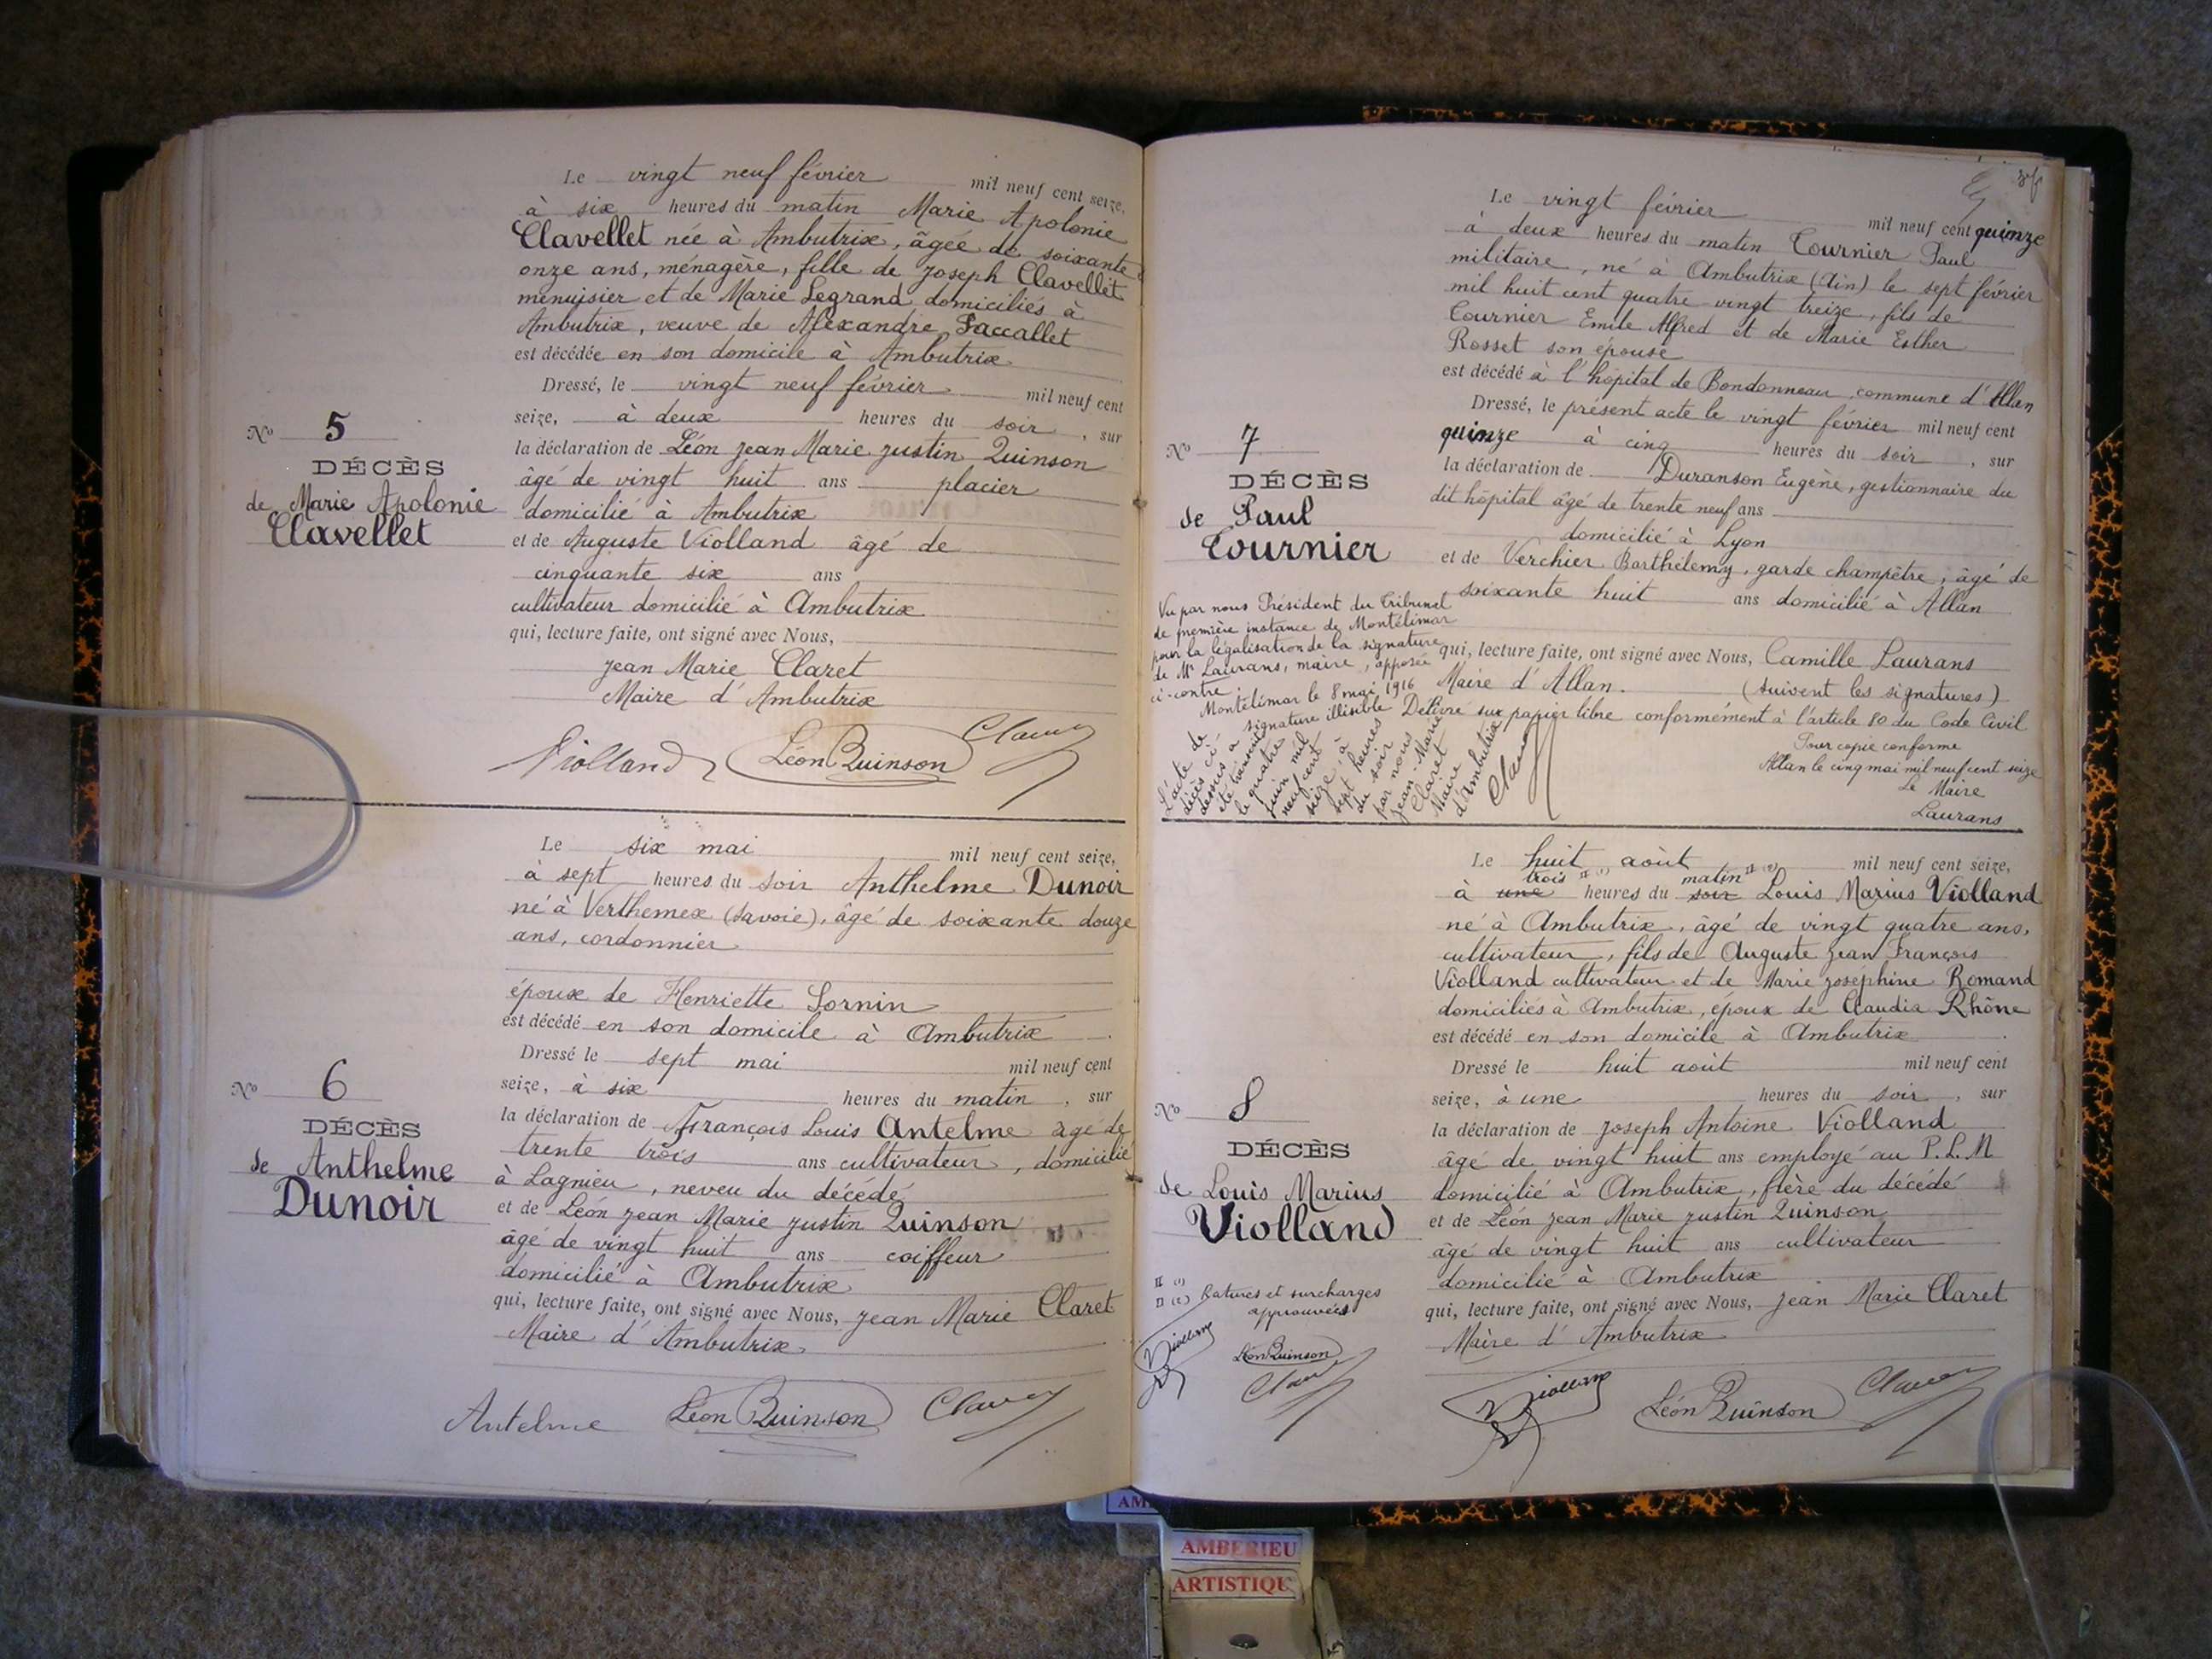 Le vingt neuf février mil neuf cent seize,
à six heures du matin Marie Apolonie
Clavellet née à Ambutrix, âgée de soixante
onze ans, ménagère, fille de Joseph Clavellet
menuisier et de Marie Legrand domiciliés à
Ambutrix, veuve de Alexandre Faccallet
est décédée en son domicile à Ambutrix
Dressé, le vingt neuf février mil neuf cent
seize, à deux heures du soir, sur
la déclaration de Léon Jean Marie Justin Quinson
âgé de vingt huit ans placier
domicilié à Ambutrix
et de Auguste Violland âgé de
cinquante six ans
cultivateur domicilié à Ambutrix
qui, lecture faite, ont signé avec Nous,
Jean Marie Claret
Maire d'Ambutrix
Violland Léon Quinson Claret
No 5
DÉCÈS
de Marie Apolonie
Clavellet
Le six mai mil neuf cent seize,
à sept heures du soir Anthelme Dunoir
né à Verthemex (Savoie), âgé de soixante douze
ans, cordonnier
époux de Henriette Lornin
est décédé en son domicile à Ambutrix
Dressé le sept mai mil neuf cent
seize, à six heures du matin, sur
la déclaration de François Louis Antelme âgé de
trente trois ans cultivateur, domicilié
à Lagnieu, neveu du décédé
et de Léon Jean Marie Justin Quinson
âgé de vingt huit ans coiffeur
domicilié à Ambutrix
qui, lecture faite, ont signé avec Nous, Jean Marie Claret
Maire d'Ambutrix
Antelme Léon Quinson Claret
No 6
DÉCÈS
de Anthelme
Dunoir
Le vingt février mil neuf cent quinze
à deux heures du matin Tournier Paul
militaire, né à Ambutrix (Ain) le sept février
mil huit cent quatre-vingt treize, fils de
Tournier Emile Alfred et de Marie Esther
Rosset son épouse
est décédé à l'hôpital de Bondonneau, commune d'Allan
Dressé, le présent acte le vingt février mil neuf cent
quinze à cinq heures du soir, sur
la déclaration de Duranson Eugène, gestionnaire du
dit hôpital âgé de trente neuf ans
domicilié à Lyon
et de Verchier Barthélemy, garde champêtre, âgé de
soixante huit ans domicilié à Allan
qui, lecture faite, ont signé avec Nous, Camille Laurans
Maire d'Allan. (suivent les signatures)
Délivré sur papier libre conformément à l'article 80 du Code Civil
Pour copie conforme
Allan le cinq mai mil neuf cent seize
Le Maire
Laurans
No 7
DÉCÈS
de Paul
Tournier
Vu par nous Président du Tribunal
de première instance de Montélimar
pour la légalisation de la signature
de Mr Laurans, maire, apposée
ci-contre.
Montélimar le 8 mai 1916
signature illisible
L'acte de
décès ci-
dessus a
été transcrit
le quatre
juin mil
neuf cent
seize, à
sept heures
du soir
par nous
Jean Marie
Claret
Maire
d'Ambutrix
Claret
Le huit août mil neuf cent seize,
trois II (1) matin II (2)
à une heures du soir Louis Marius Violland
né à Ambutrix, âgé de vingt quatre ans,
cultivateur, fils de Auguste Jean François
Violland cultivateur et de Marie Joséphine Romand
domiciliés à Ambutrix, époux de Claudia Rhône
est décédé en son domicile à Ambutrix
Dressé le huit août mil neuf cent
seize, à une heures du soir, sur
la déclaration de Joseph Antoine Violland
âgé de vingt huit ans employé au P.L.M
domicilié à Ambutrix, frère du décédé
et de Léon Jean Marie Justin Quinson
âgé de vingt huit ans cultivateur
domicilié à Ambutrix
qui, lecture faite, ont signé avec Nous, Jean Marie Claret
Maire d'Ambutrix
Violland Léon Quinson Claret
No 8
DÉCÈS
de Louis Marius
Violland
II (1)
II (2) Ratures et surcharges
approuvées
Violland Léon Quinson
Claret
AMBERIEU
ARTISTIQU